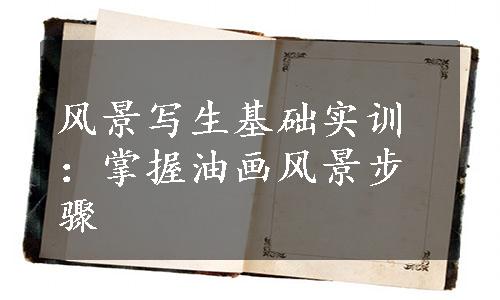 风景写生基础实训
：掌握油画风景步
骤